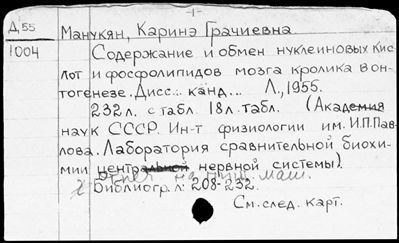 -1-
Д.55
Манукян, Каринэ Грачиевна.
1004
Содержание и обмен нуклеиновых кис-
лот и фосфолипидов мозга кролика в он-
тогенезе. Дисс... канд... Л., 1955.
232 л. с табл. 18 л. табл. (Академия
наук СССР. Ин-т физиологии им. И.П. Пав-
лова. Лаборатория сравнительной биохи-
мии центральной нервной системы).
на пиш. маш.
Библиогр. л: 208-232.
См. след. карт.